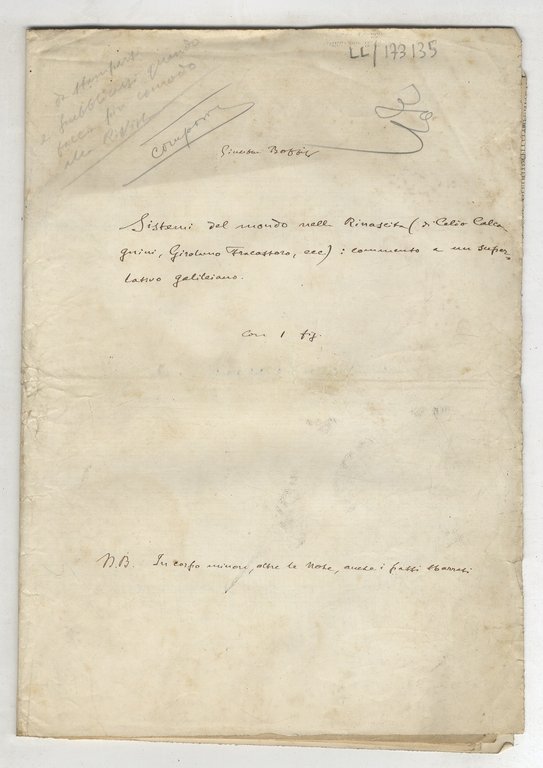 LL/173135
da stampare
e pubblicarsi quando
faccia più comodo
alla Rivista
comporre
Giuseppe Boffito
Sistemi del mondo nella Rinascita (di Celio Calca
gnini, Girolamo Fracastoro, ecc.) : commento a un super-
lativo galileiano.
Con 1 fig.
N.B. In corpo minore, oltre le Note, anche i passi sbarrati